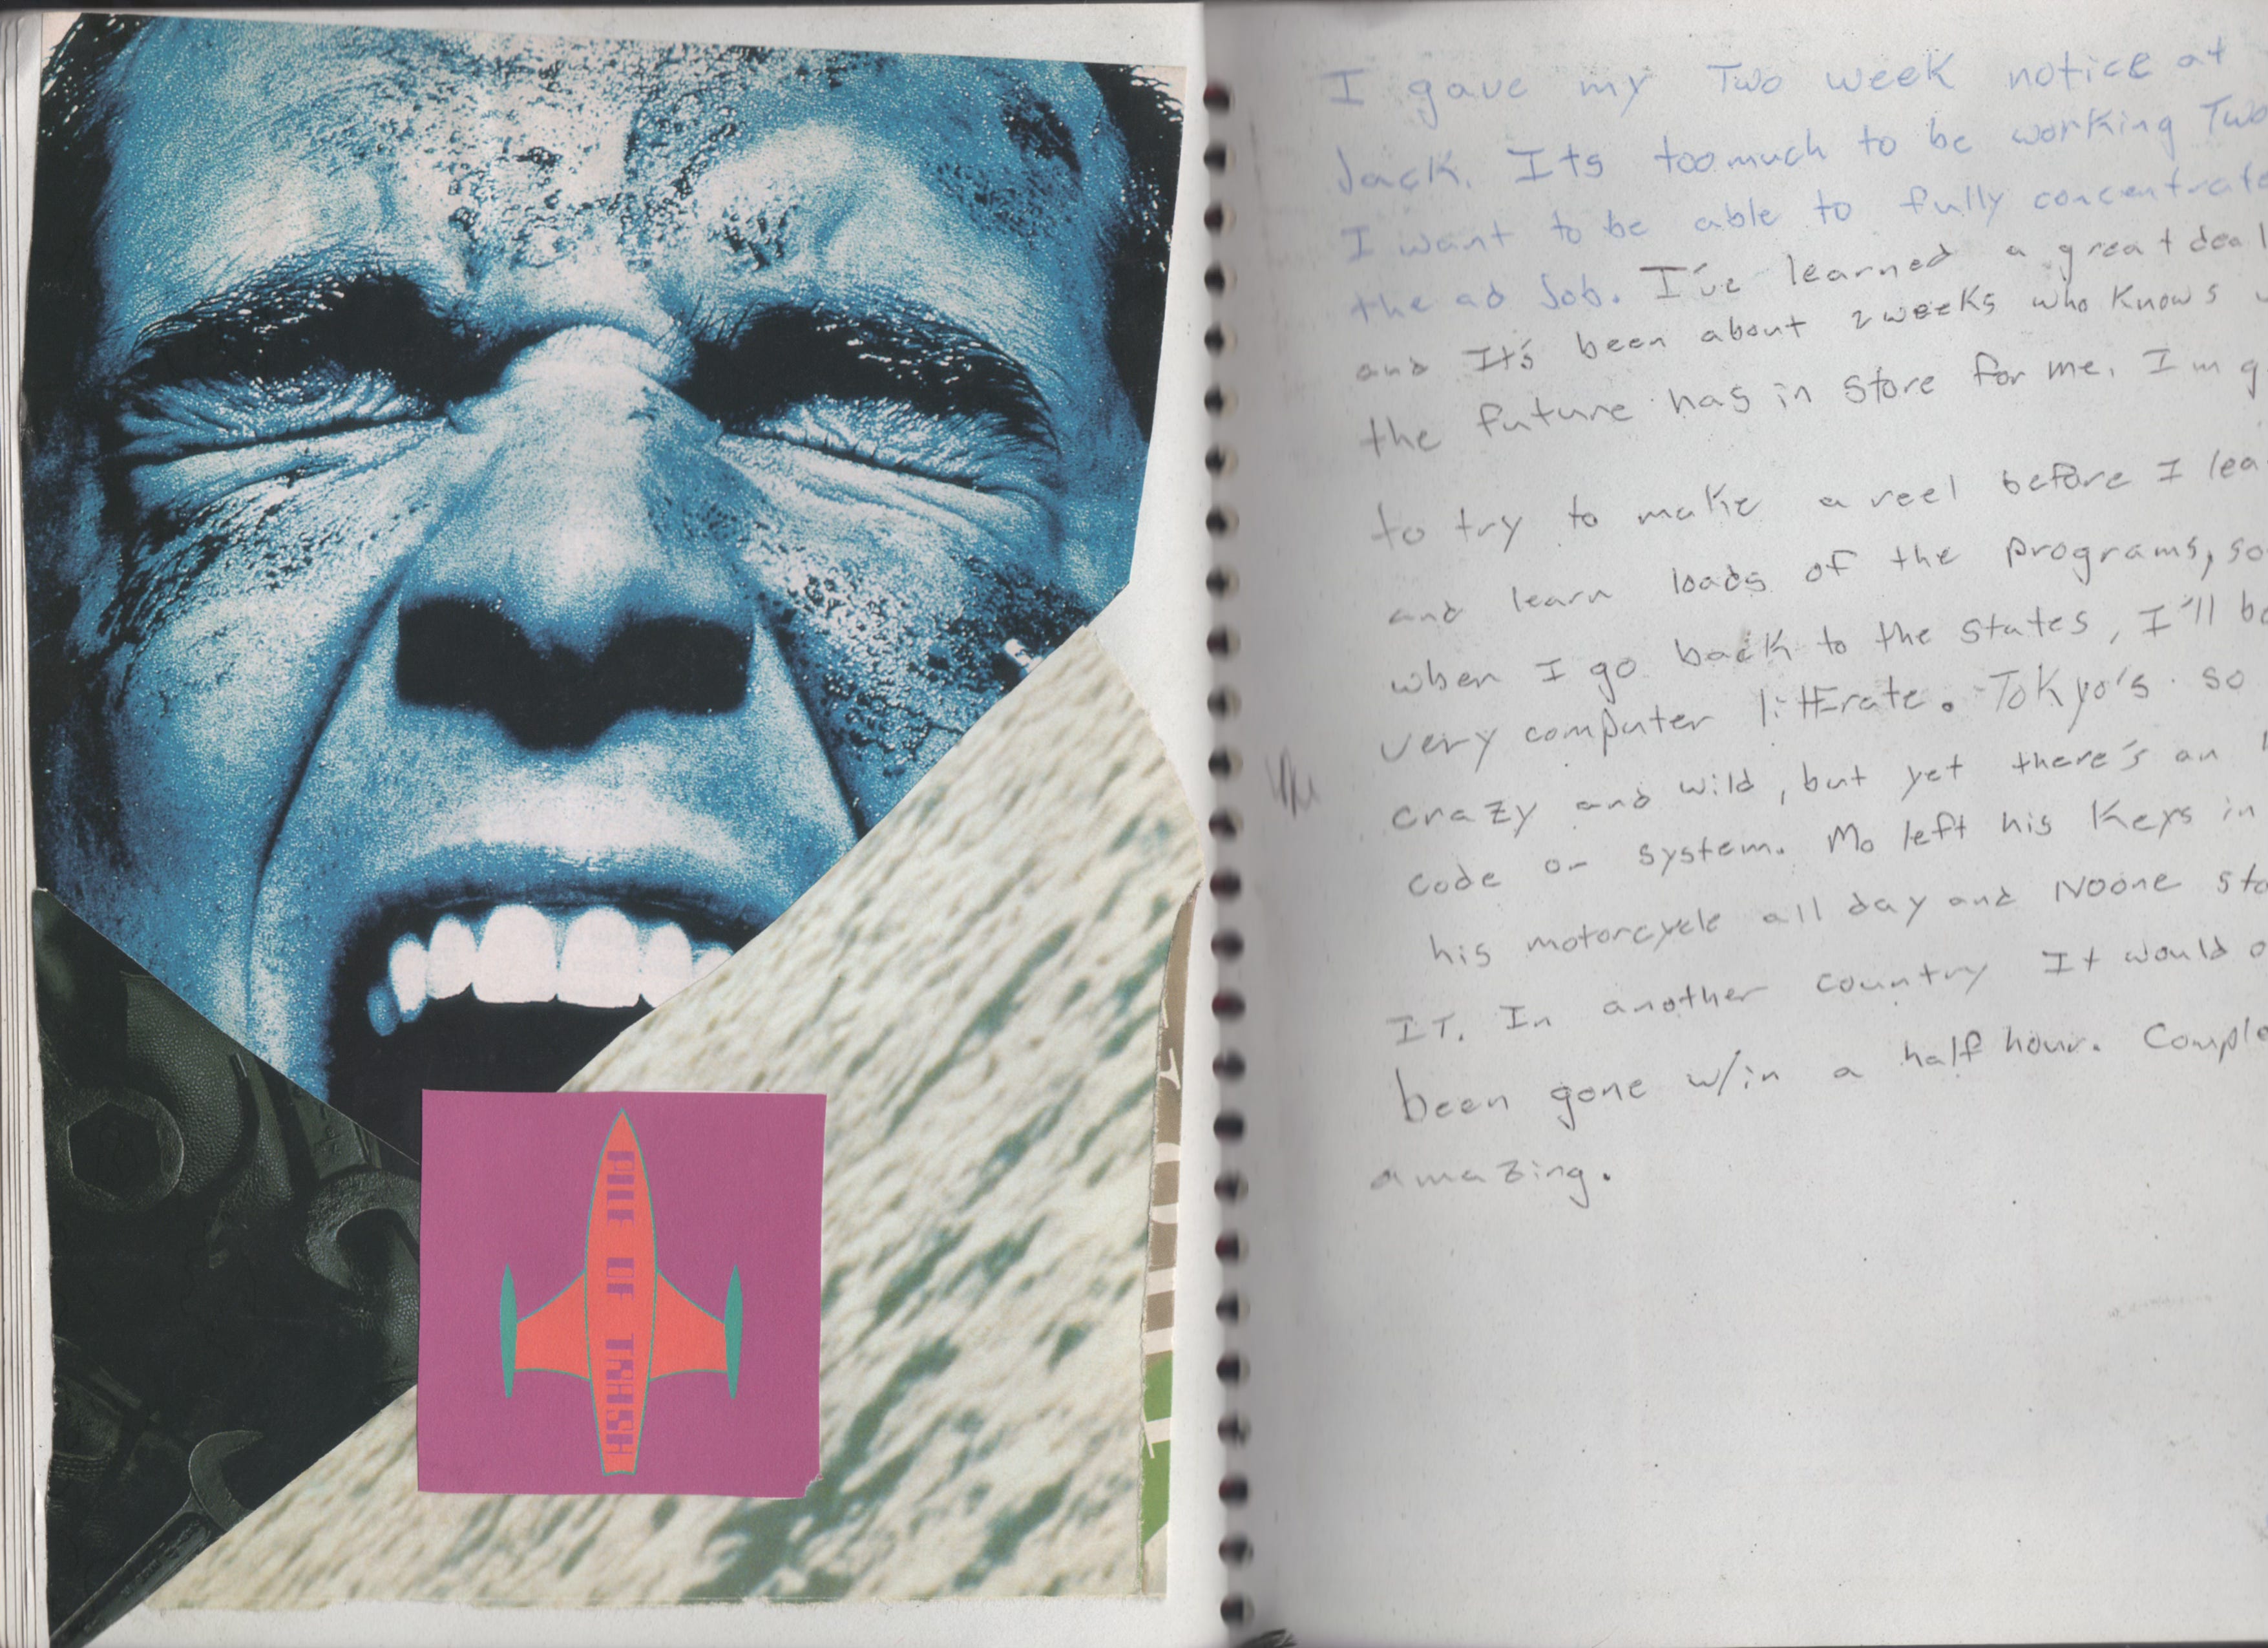 PILE OF TRASH
I gave my Two week notice at
Jack. Its too much to be working Two
I want to be able to fully concentrate
the ad Job. I've learned a great deal
and It's been about 2 weeks who knows
the future has in store for me. Im g
to try to make a reel before I lea
and learn loads of the programs, so
when I go back to the states, I'll be
very computer littErate. Tokyo's so
crazy and wild, but yet there's an
code or system. Mo left his keys in
his motorcycle all day and Noone sto
IT. In another country It would
been gone w/in a half hour. Comple
amazing.